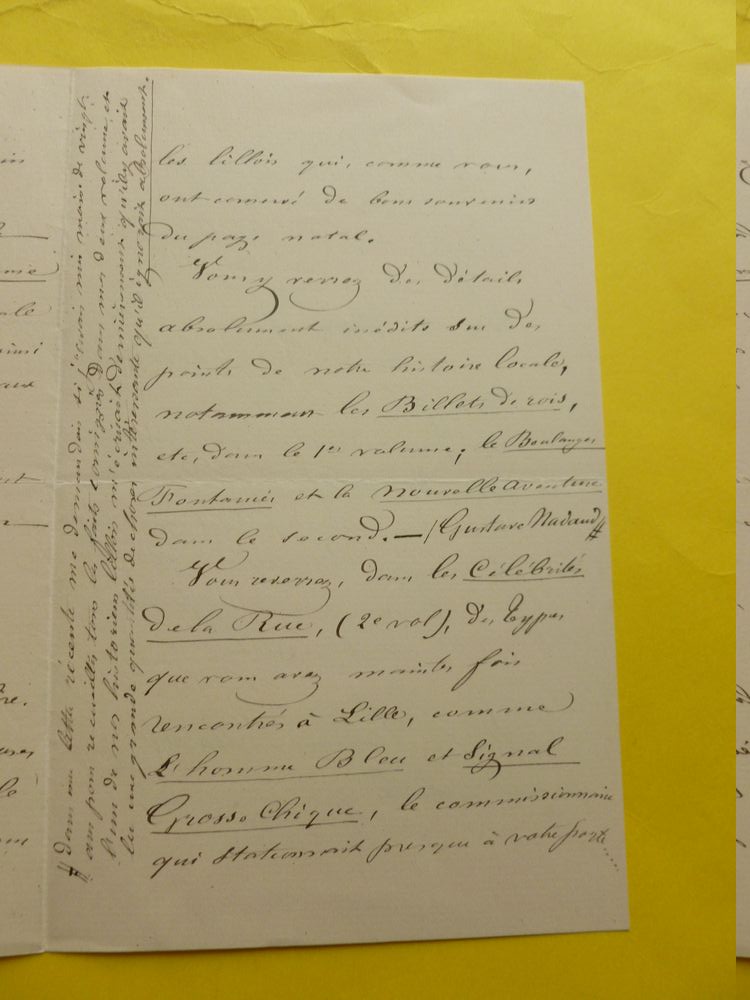 les lillois qui, comme vous,
ont conservé de bons souvenirs
du pays natal.
Vous y verrez des détails
absolument inédits sur des
points de notre histoire locale,
notamment les Billets de rois,
etc, dans le 1er volume; le Boulanger
Fontaines et la nouvelle aventure
dans le second. — (Gustave Nadaud) #
Vous reverrez, dans les Célébrités
de la Rue, (2e vol), des types
que vous avez maintes fois
rencontrés à Lille, comme
L'homme Bleu et Signal
Grosse Chique, le commissionnaire
qui stationnait presque à votre porte.....
# dans une lettre récente me demandait si j'avais mis moins de vingt
ans pour recueillir tous les faits consignés dans mes deux volumes et
l'un de nos historiens lillois m'écrivait dernièrement qu'il y avait
lu une grande quantité de choses intéressantes qu'il ignorait absolument.